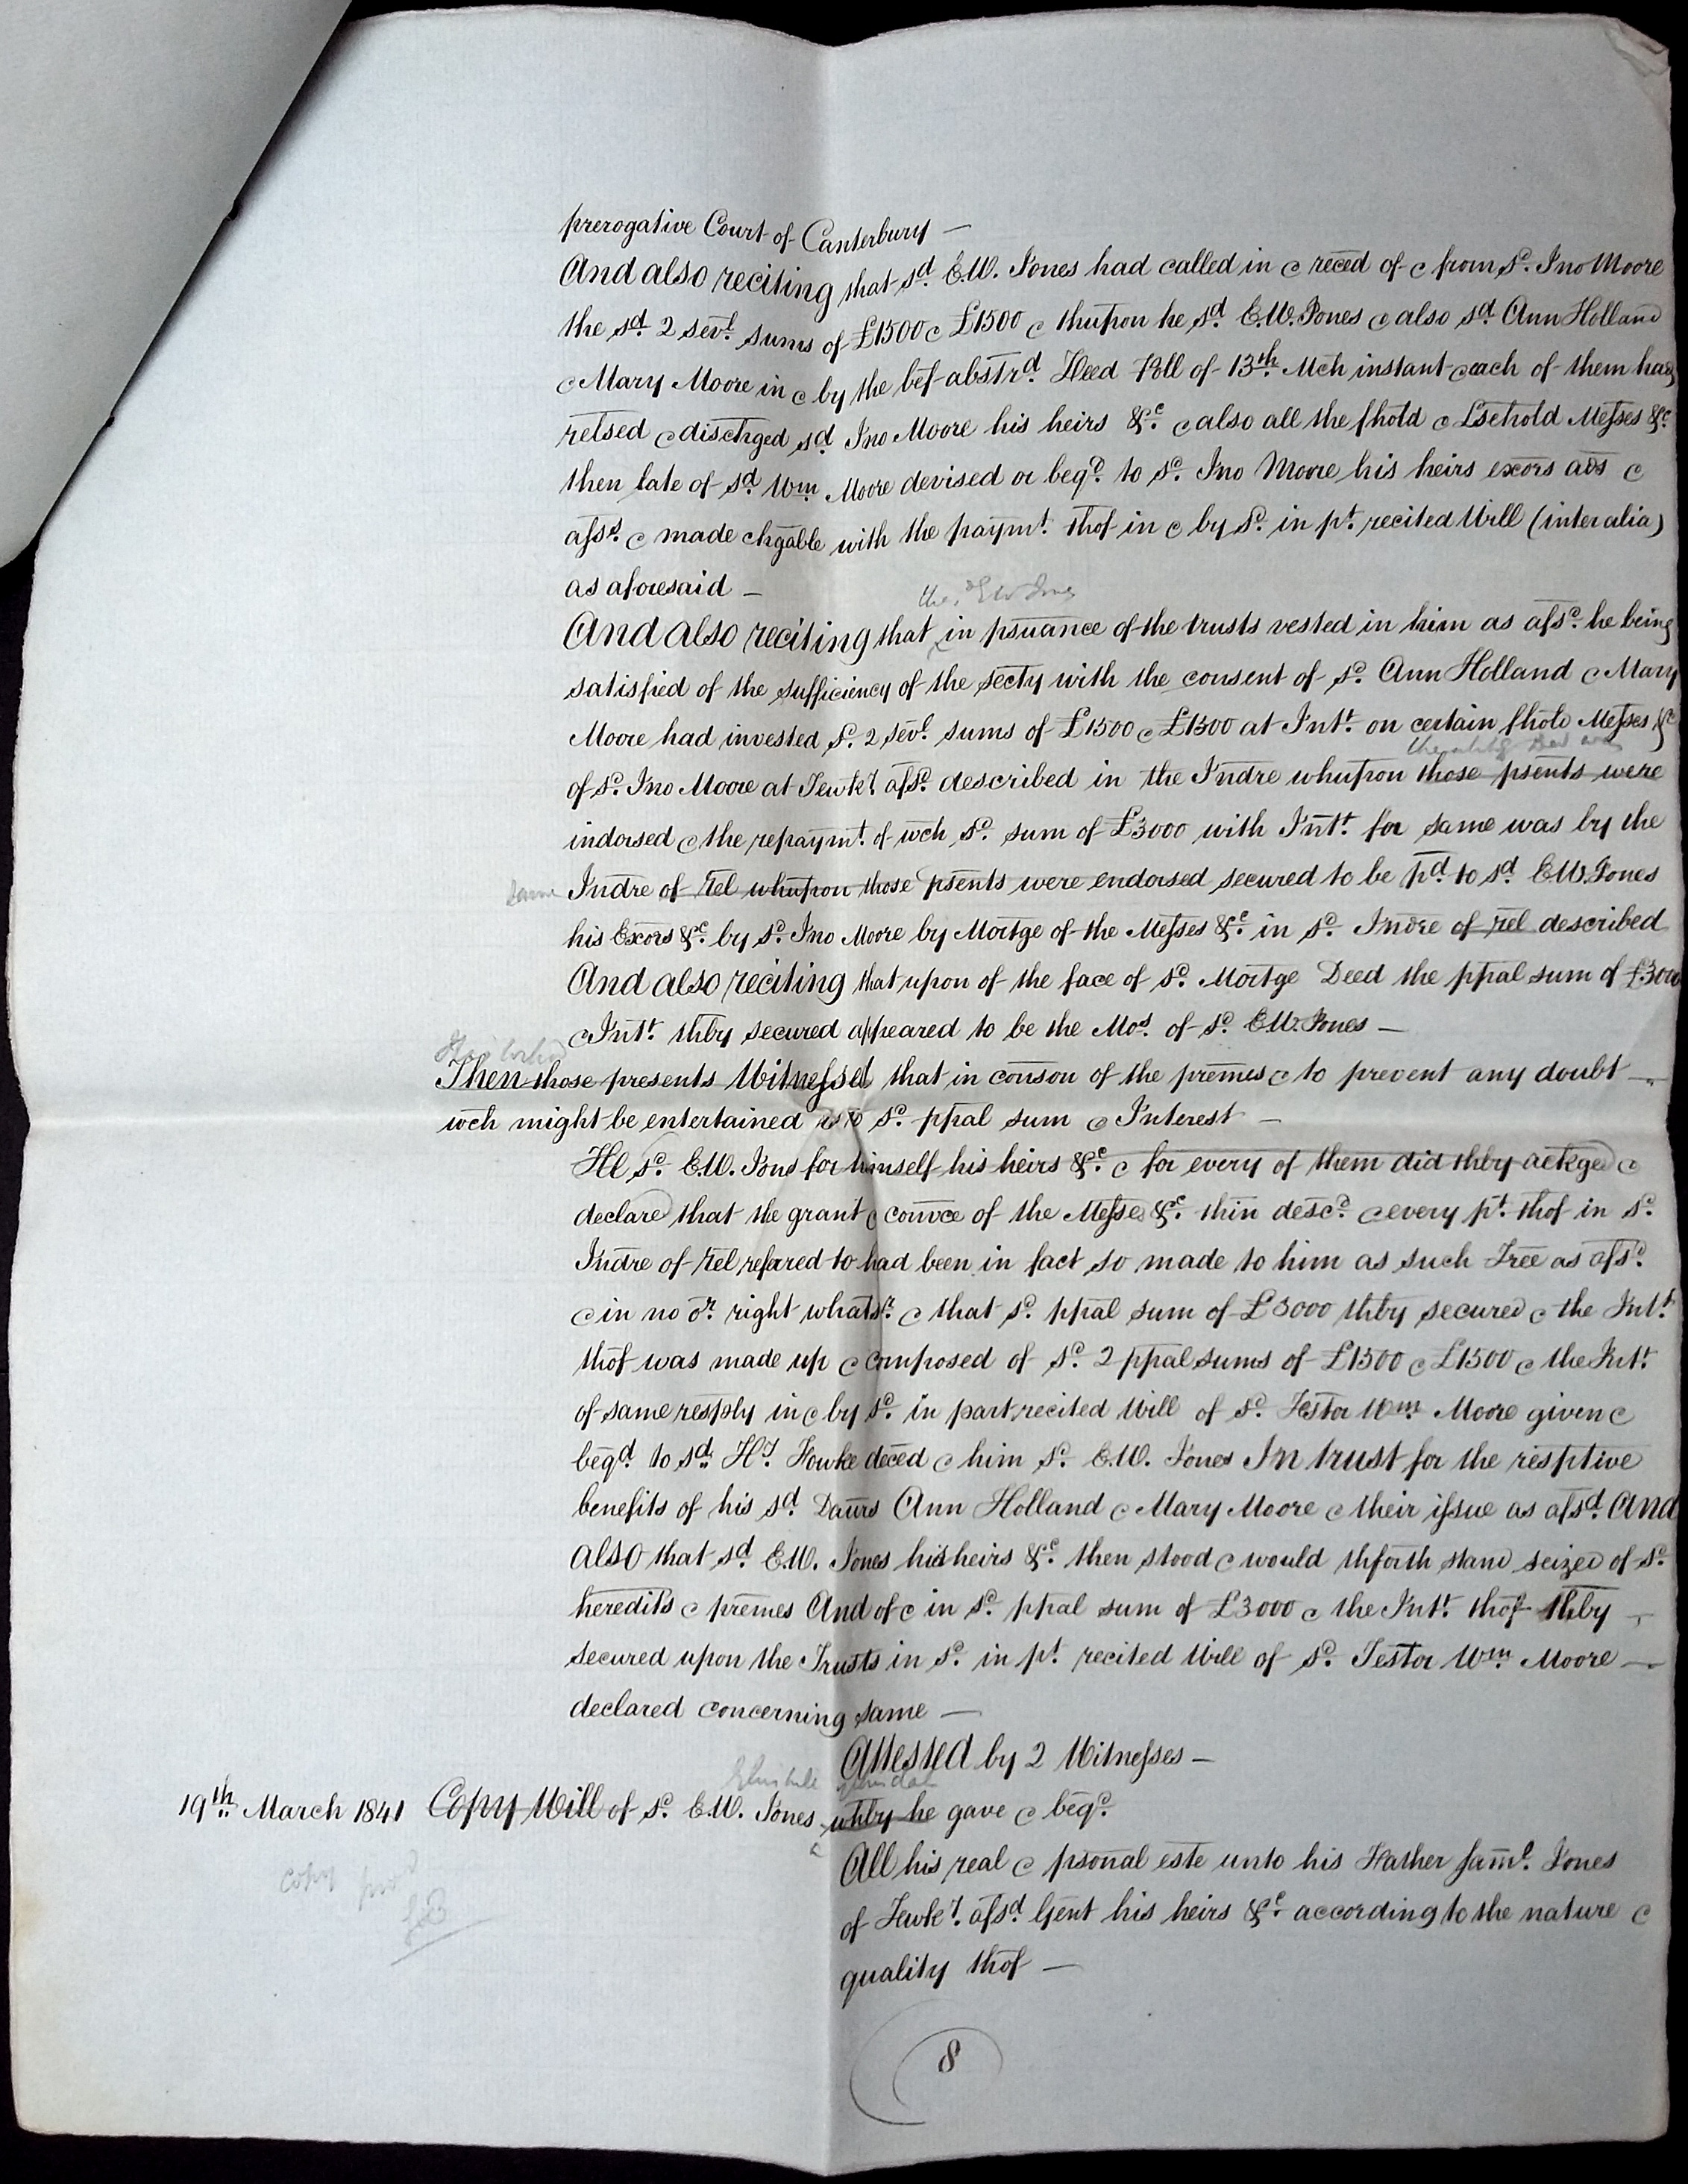 prerogative Court of Canterbury —
And also reciting that sd. E.W. Jones had called in & reced of & from sd. Jno Moore
the sd. 2 sevl. sums of £1500 & £1500 & thupon he sd. E.W. Jones & also sd. Ann Holland
& Mary Moore in & by the bef abstrd. Deed Poll of 13th. Mch instant & each of them had
relsed & dischged sd. Jno Moore his heirs &c. & also all the fhold & Lsehold Messes &c.
then late of sd. Wm. Moore devised or beqd. to sd. Jno Moore his heirs exors ads &
asss. & made chgable with the paymt. thof in & by sd. in pt. recited Will (inter alia)
as aforesaid —
the sd E W Jones
And also reciting that in psuance of the trusts vested in him as afsd. he being
satisfied of the sufficiency of the secty with the consent of sd. Ann Holland & Mary
Moore had invested sd. 2 sevl. sums of £1500 & £1500 at Intt. on certain fhold Messes &c
of sd. Jno Moore at Tewky. afsd. described in the Indre whupon those psents were
indorsed & the repaymt. of wch sd. sum of £3000 with Intt. for same was by the
same Indre of rel whupon those psents were endorsed secured to be pd. to sd. E.W. Jones
his Exors &c. by sd. Jno Moore by Mortge of the Messes &c. in sd. Indre of rel described
And also reciting that upon of the face of sd. Mortge Deed the ppal sum of £3000
& Intt. thby secured appeared to be the Mos. of sd. E.W. Jones —
Then those presents Witnessed that in conson of the premes & to prevent any doubt —
wch might be entertained as to sd. ppal sum & Interest —
He sd. E.W. Jones for himself his heirs &c. & for every of them did thby ackged &
declare that the grant & convce of the Messes &c. thin descd. & every pt. thof in sd.
Indre of rel refared to had been in fact so made to him as such Tree as afsd.
& in no or. right whatsr. & that sd. ppal sum of £3000 thby secured & the Intt.
thof was made up & composed of sd. 2 ppal sums of £1500 & £1500 & the Intt.
of same resply in & by sd. in part recited Will of sd. Testor Wm. Moore given &
beqd. to sd. Hy. Fowke deced & him sd. E.W. Jones In trust for the resptive
benefits of his sd. Daurs Ann Holland & Mary Moore & their issue as afsd. And
also that sd. E.W. Jones his heirs &c. then stood & would thforth stand seized of sd.
heredits & premes And of & in sd. ppal sum of £3000 & the Intt. thof thby —
secured upon the Trusts in sd. in pt. recited Will of sd. Testor Wm. Moore —
declared concerning same —
Attested by 2 Witnesses —
19th. March 1841 Copy Will of sd. E.W. Jones whby he gave & beqd.
All his real & psonal este unto his Father Saml. Jones
of Tewky. afsd. Gent his heirs &c. according to the nature &
quality thof —
copy
8